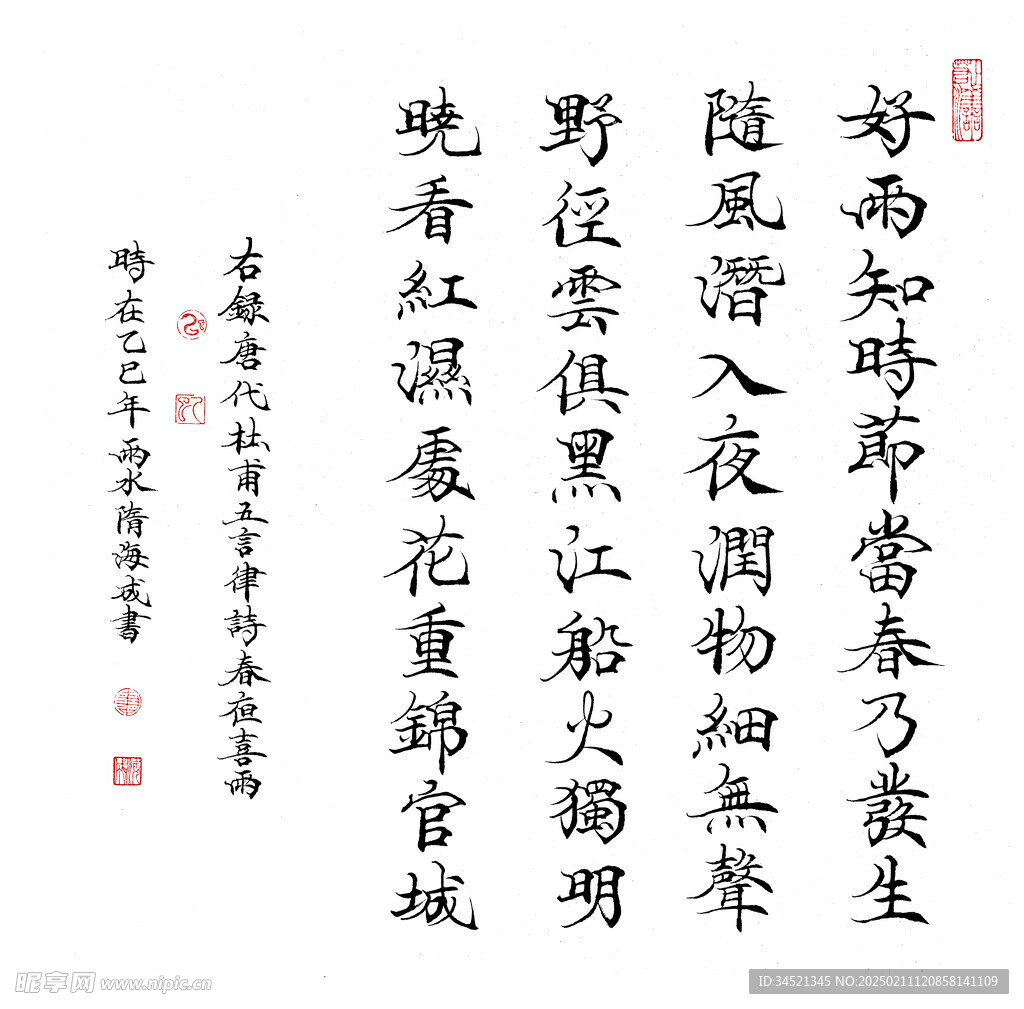 好雨知時節當春乃發生
隨風潛入夜潤物細無聲
野徑雲俱黑江船火獨明
曉看紅濕處花重錦官城
右録唐代杜甫五言律詩春夜喜雨
時在乙巳年雨水隋海成書
昵享网 www.nipic.cn
ID:34521345 NO:20250211120858141109